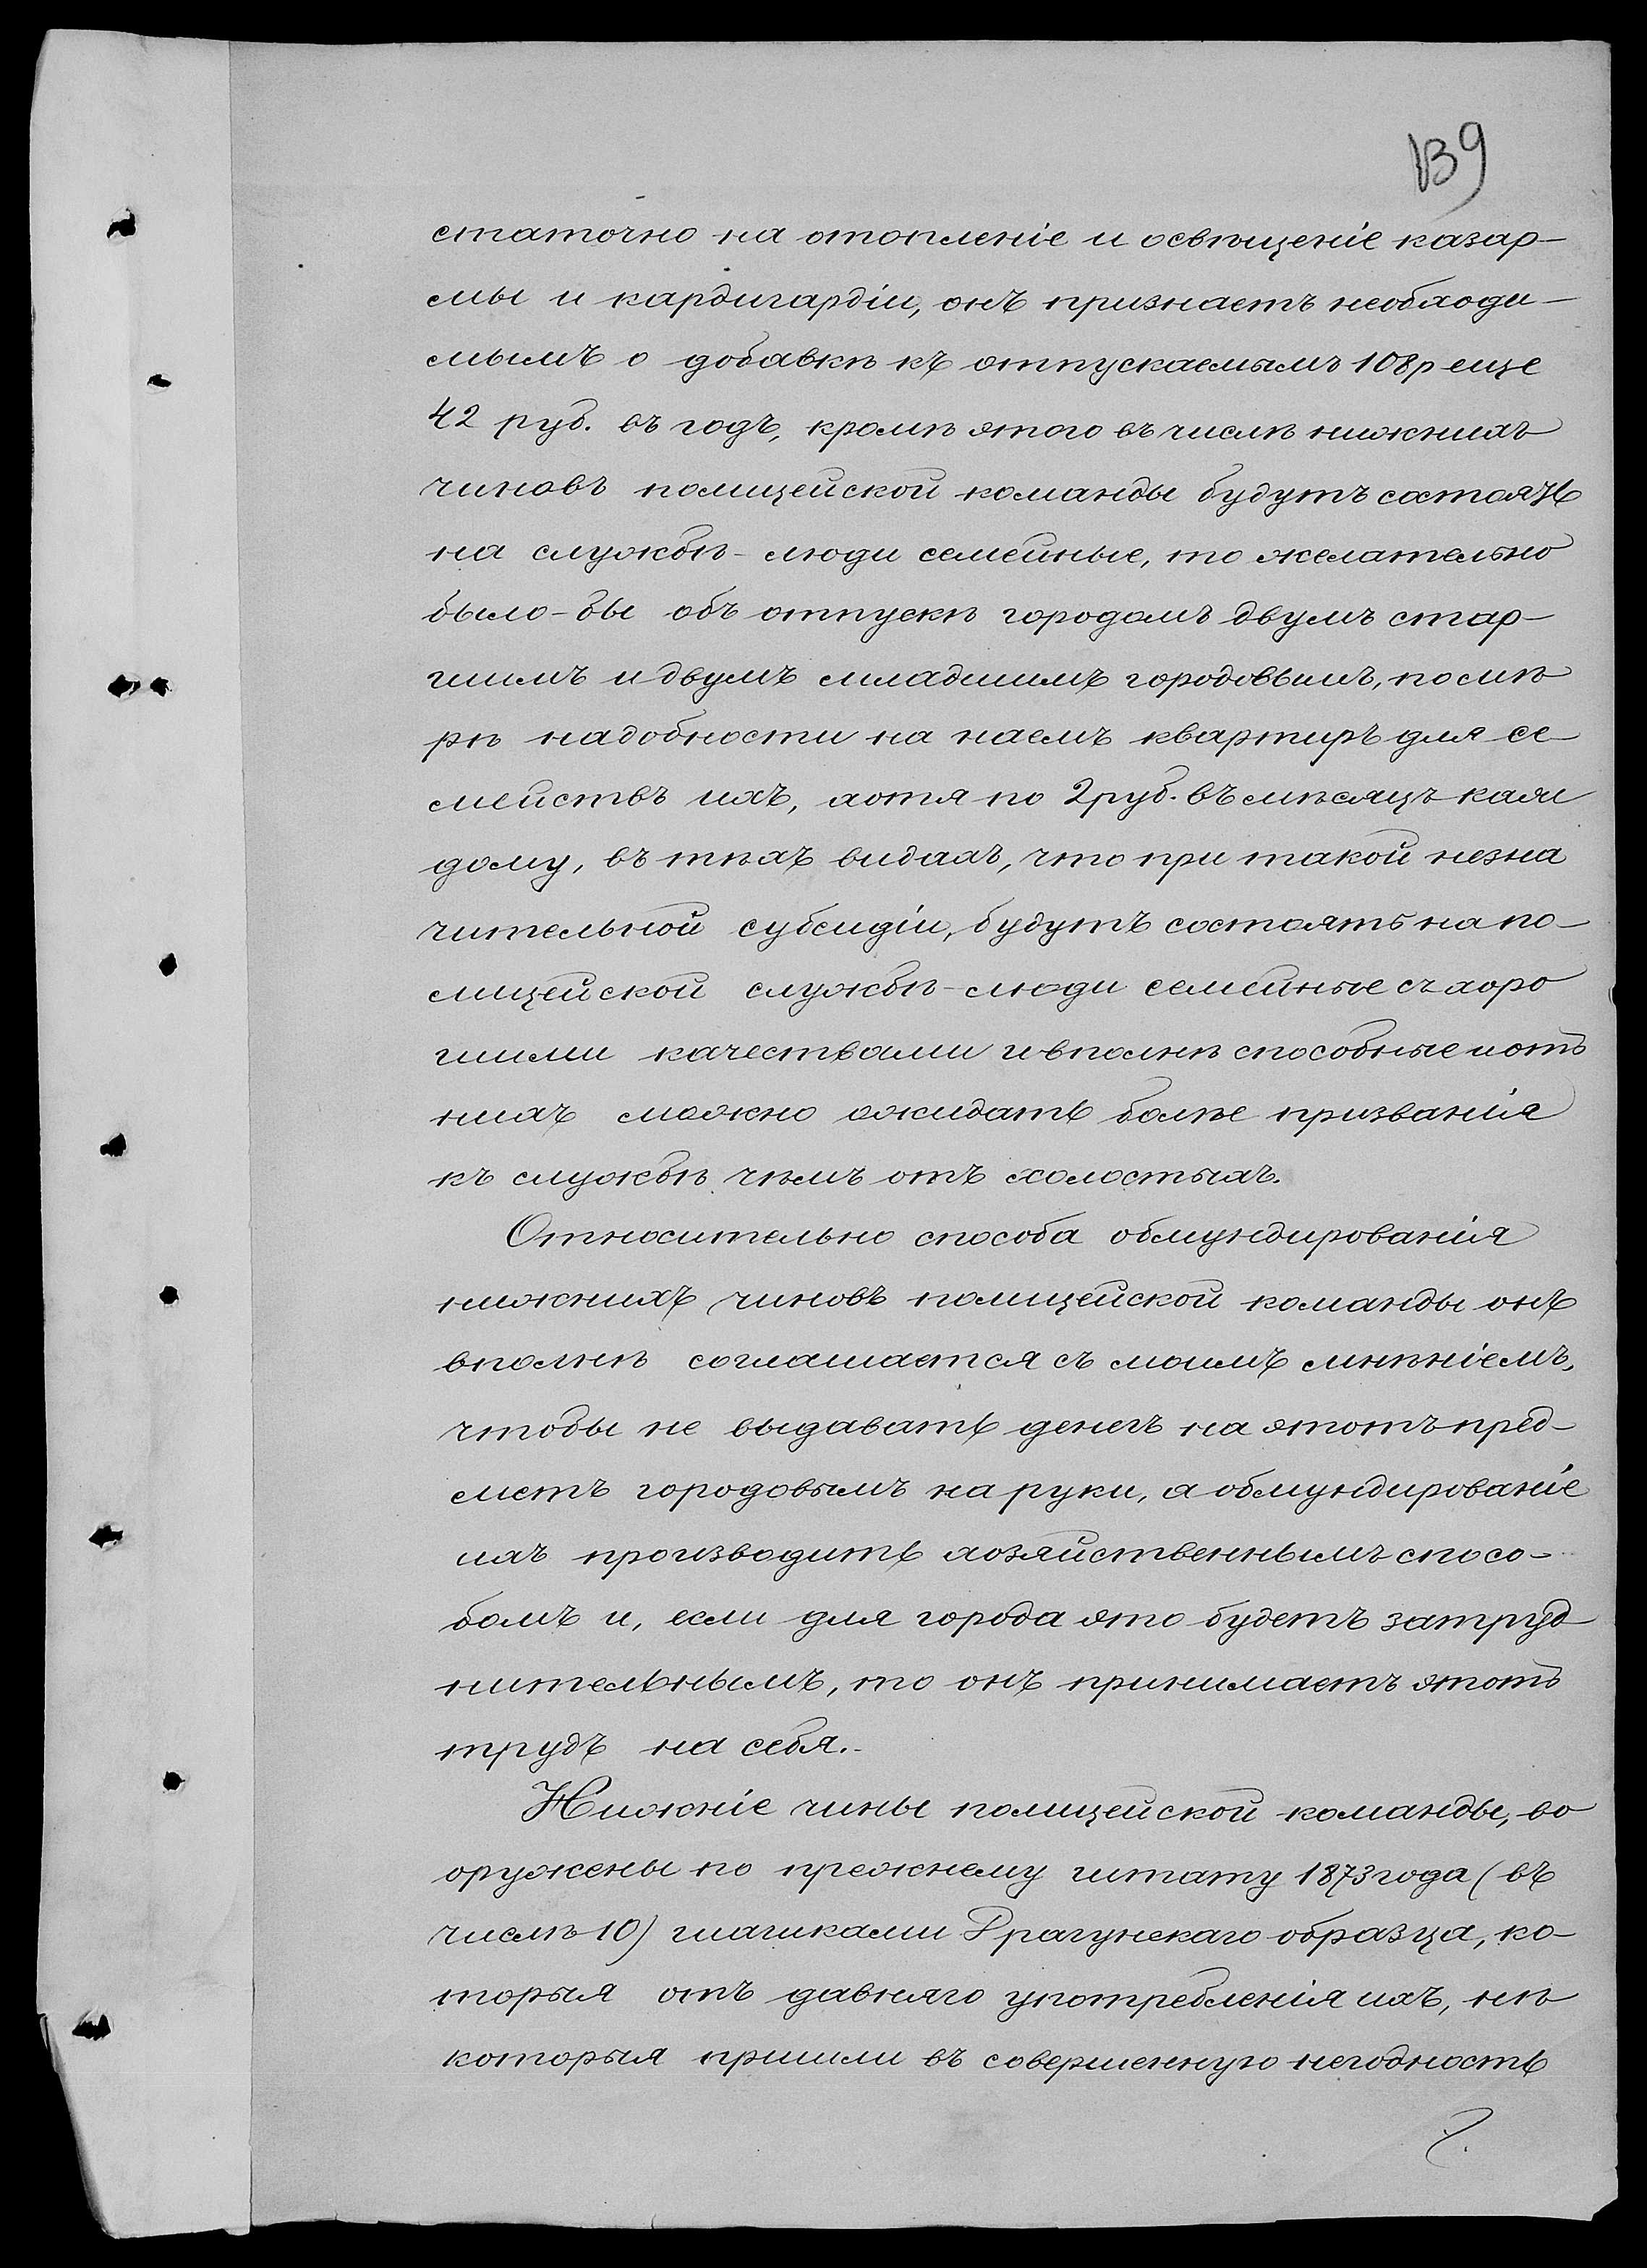 139
статочно на отопленіе и освѣщеніе казар-
мы и кардигардіи, онъ признаетъ необходи-
мымъ о добавкѣ къ отпускаемымъ 108р еще
42 руб. въ годъ, кромѣ этого въ числѣ нижнихъ
чиновъ полицейской команды будутъ состоять
на службѣ - люди семейные, то желательно
было-бы объ отпускѣ городомъ двумъ стар-
шимъ и двумъ младшимъ городовымъ, по мѣ
рѣ надобности на наемъ квартиръ для се-
мействъ ихъ, хотя по 2 руб. въ мѣсяцъ каж
дому, въ тѣхъ видахъ, что при такой незна
чительной субсидіи, будутъ состоять на по-
лицейской службѣ - люди семейные съ хоро
шими качествами и вполнѣ способные и отъ
нихъ можно ожидать болѣе призванія
къ службѣ чѣмъ отъ холостыхъ.
Относительно способа обмундированія
нижнихъ чиновъ полицейской команды онъ
вполнѣ соглашается съ моимъ мнѣніемъ,
чтобы не выдавать денегъ на этотъ пред-
метъ городовымъ на руки, а обмундированіе
ихъ производить хозяйственнымъ спосо-
бомъ и, если для города это будетъ затруд
нительнымъ, то онъ принимаетъ этотъ
трудъ на себя.-
Нижніе чины полицейской команды, во
оружены по прежнему штату 1873 года (въ
числѣ 10) шашками Драгунскаго образца, ко-
торыя отъ давняго употребленія ихъ, нѣ
которыя пришли въ совершенную негодность